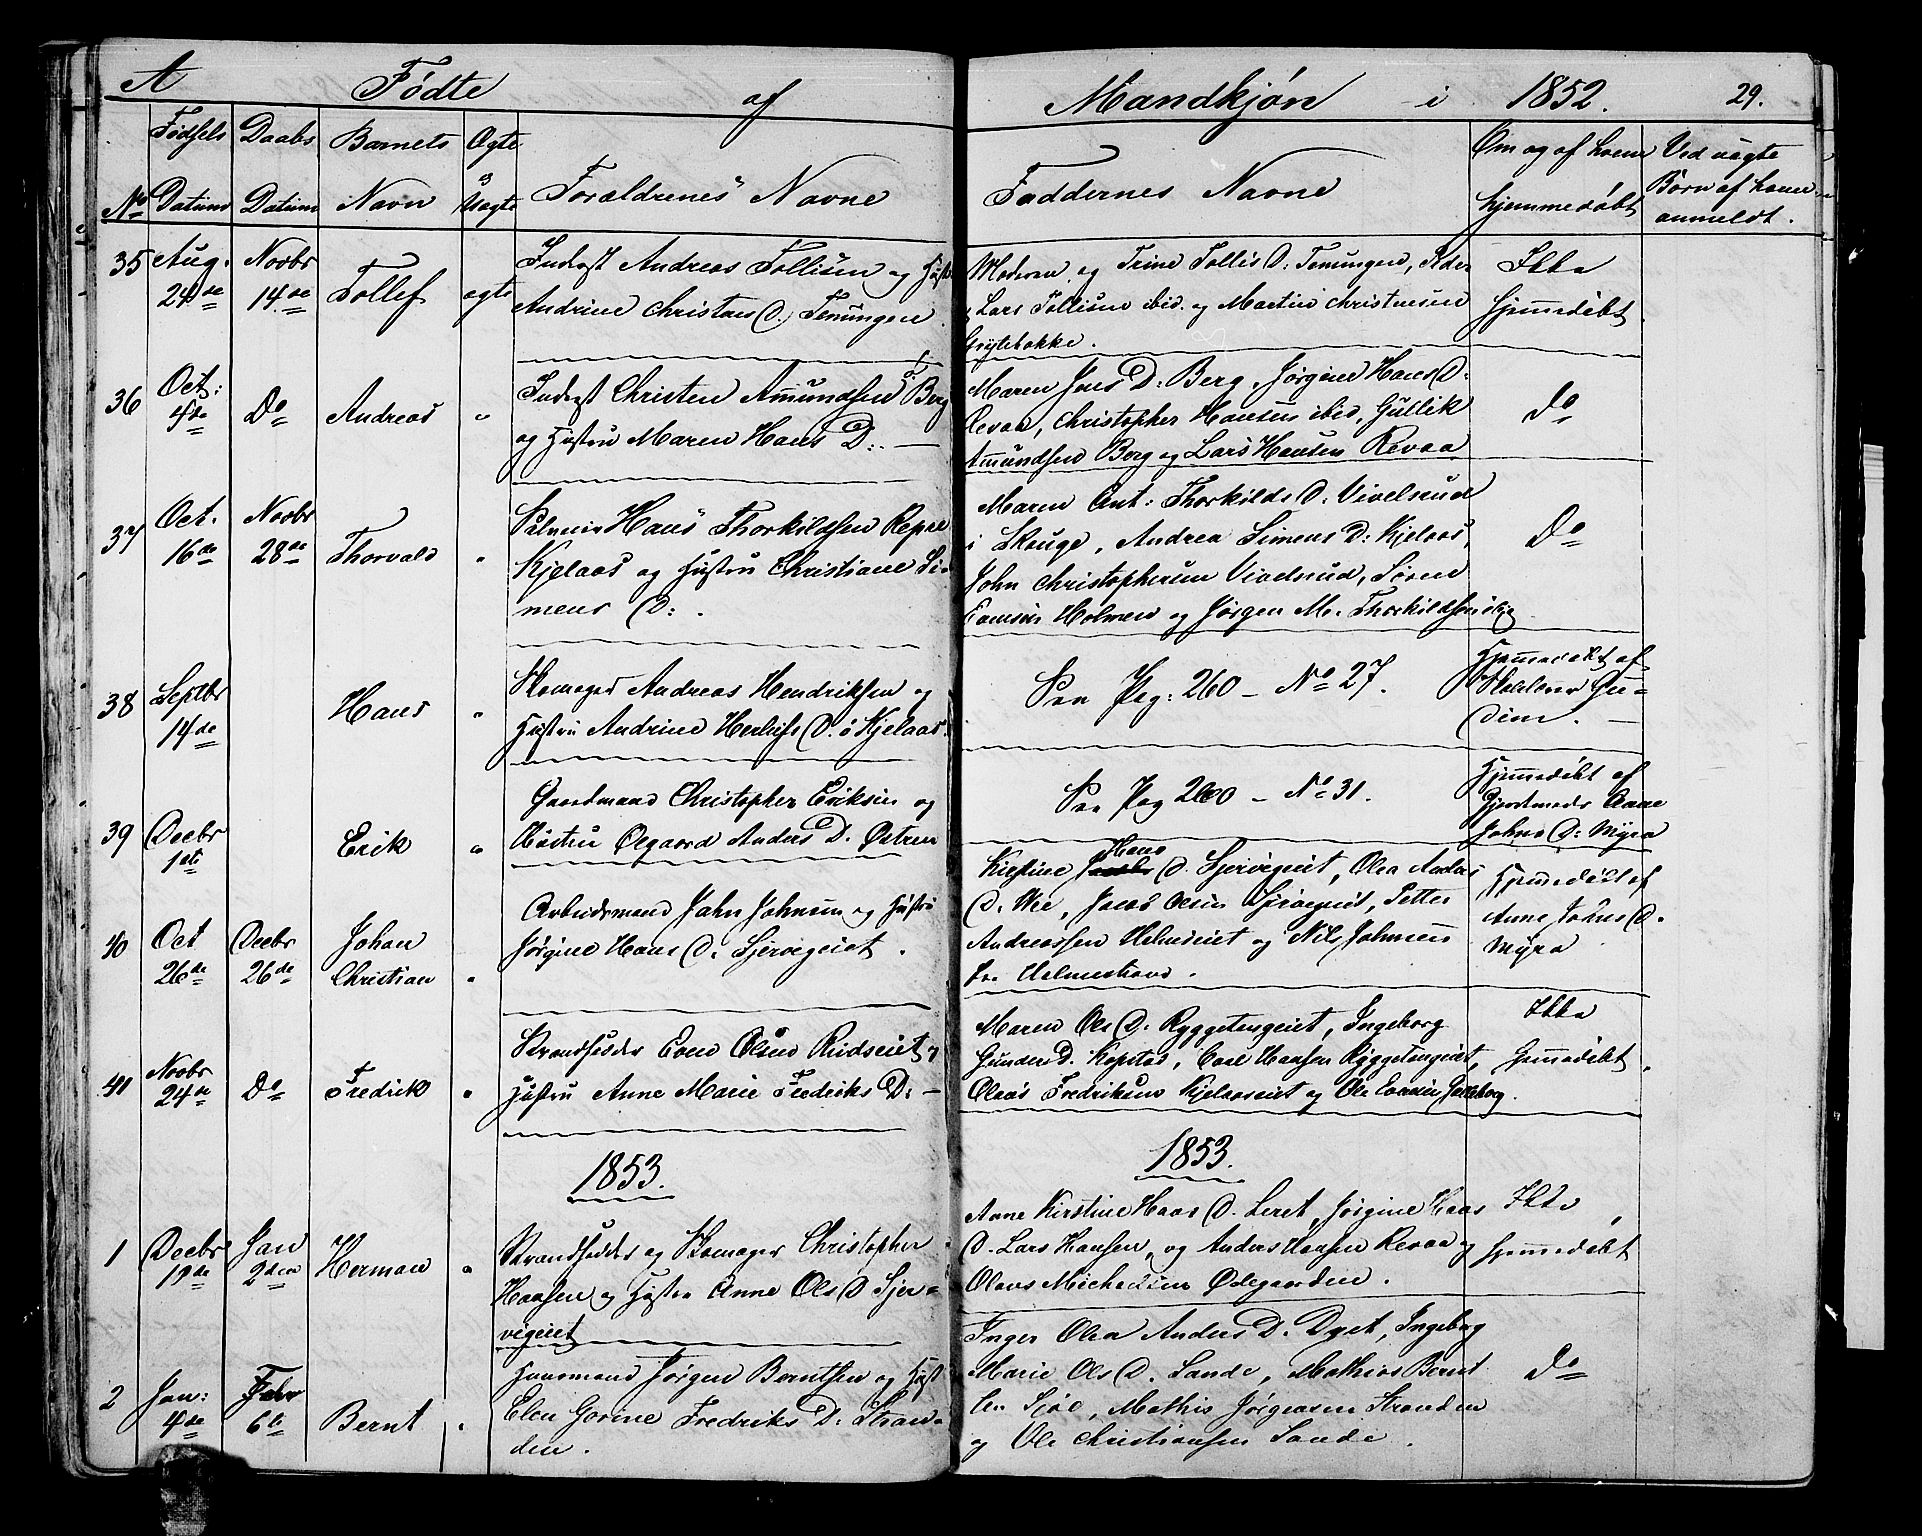 A Fødte af Mandkjøn i 1852. 29.
No Fødsels Datum Daabs Datum Barnets Navn Ægte Uægte Forældrenes Navne Faddernes Navne Om og af hvem hjemmedøbt Ved uægte Børn af hvem anmeldt.
35 Aug. 24de Novbr 14de Tollef ægte
Andreas Tollisen og
Andrine Christens D. Temungen
Moderen og Trine Tollis D: Temungen,
Lars Tollisen ibid. og Martin Christensen
Ikke
hjemmedøbt.
36 Oct: 4de Do Andreas "
Christen Amundsen Berg
og Hustru Maren Hans D: —
Maren Jens D: Berg, Jørgine Hans D:
Revaa, Christopher Hansen ibid, Gullik
Amundsen Berg og Lars Hansen Revaa
Do
37 Oct. 16de Novbr 28de Thorvald "
Hans Thorkildsen
Kjelaas og Hustru Christiane Si-
mens D: .
Maren Ant: Thorkilds D: Vivelsrud
i Skouge, Andrea Simens D: Kjelaas,
John Christophersen Vivelsrud, Søren
Holmen og Jørgen M. Thorkildsen
Do
38 Septbr 14de Hans "
Skomager Andreas Hendriksen og
Hustru Andrine D. i Kjelaas.
Pag: 260 - No 27.
Hjemmedøbt af
39 Decbr 1ste Erik "
Gaardmand Christopher Eriksen og
Hustru Anders D.
Pag 260 - No 31.
Hjemmedøbt af
Anne
Johns D: Myra
40 Oct 26de Decbr 26de Johan Christian "
Arbeidsmand John Johnsen og Hustru
Jørgine Hans D.
Kirstine Hans D. Olea Anders
D. Jacob Olsen Petter
Andreassen og Nils Johnsen
Helmestrand.
Hjemmedøbt af
Anne Johns D.
Myra
41 Novbr 24de Do Fredrik "
Strandsidder Even Olsen Rudseiet og
Hustru Anne Marie Fredriks D: —
Maren Ols D. Ryggetangeiet, Ingeborg
D. Kopstad, Carl Hansen Ryggetangeiet,
Olaus Fredriksen Kjelaaseiet og Ole
Ikke
hjemmedøbt.
1853. 1853.
1 Decbr 19de Jan 2den Herman "
Strandsidder og Skomager Christopher
Hansen og Hustru Anne Ols D
Anne Kirstine Hans D. Leret, Jørgine Hans
D. Lars Hansen, og Anders Hansen Revaa og
Olavs Michelsen Ødegaarden.
Ikke
hjemmedøbt
2 Jan: 4de Febr 6te Bernt "
Huusmand Jørgen Berntsen og Hust
Elen Gorine Fredriks D: Stran-
den.
Inger Olea Anders D. Ingeborg
Marie Ols D. Sande, Mathias Bernt
sen Mathis Jørgensen Stranden
og Ole Christiansen Sande.
Do